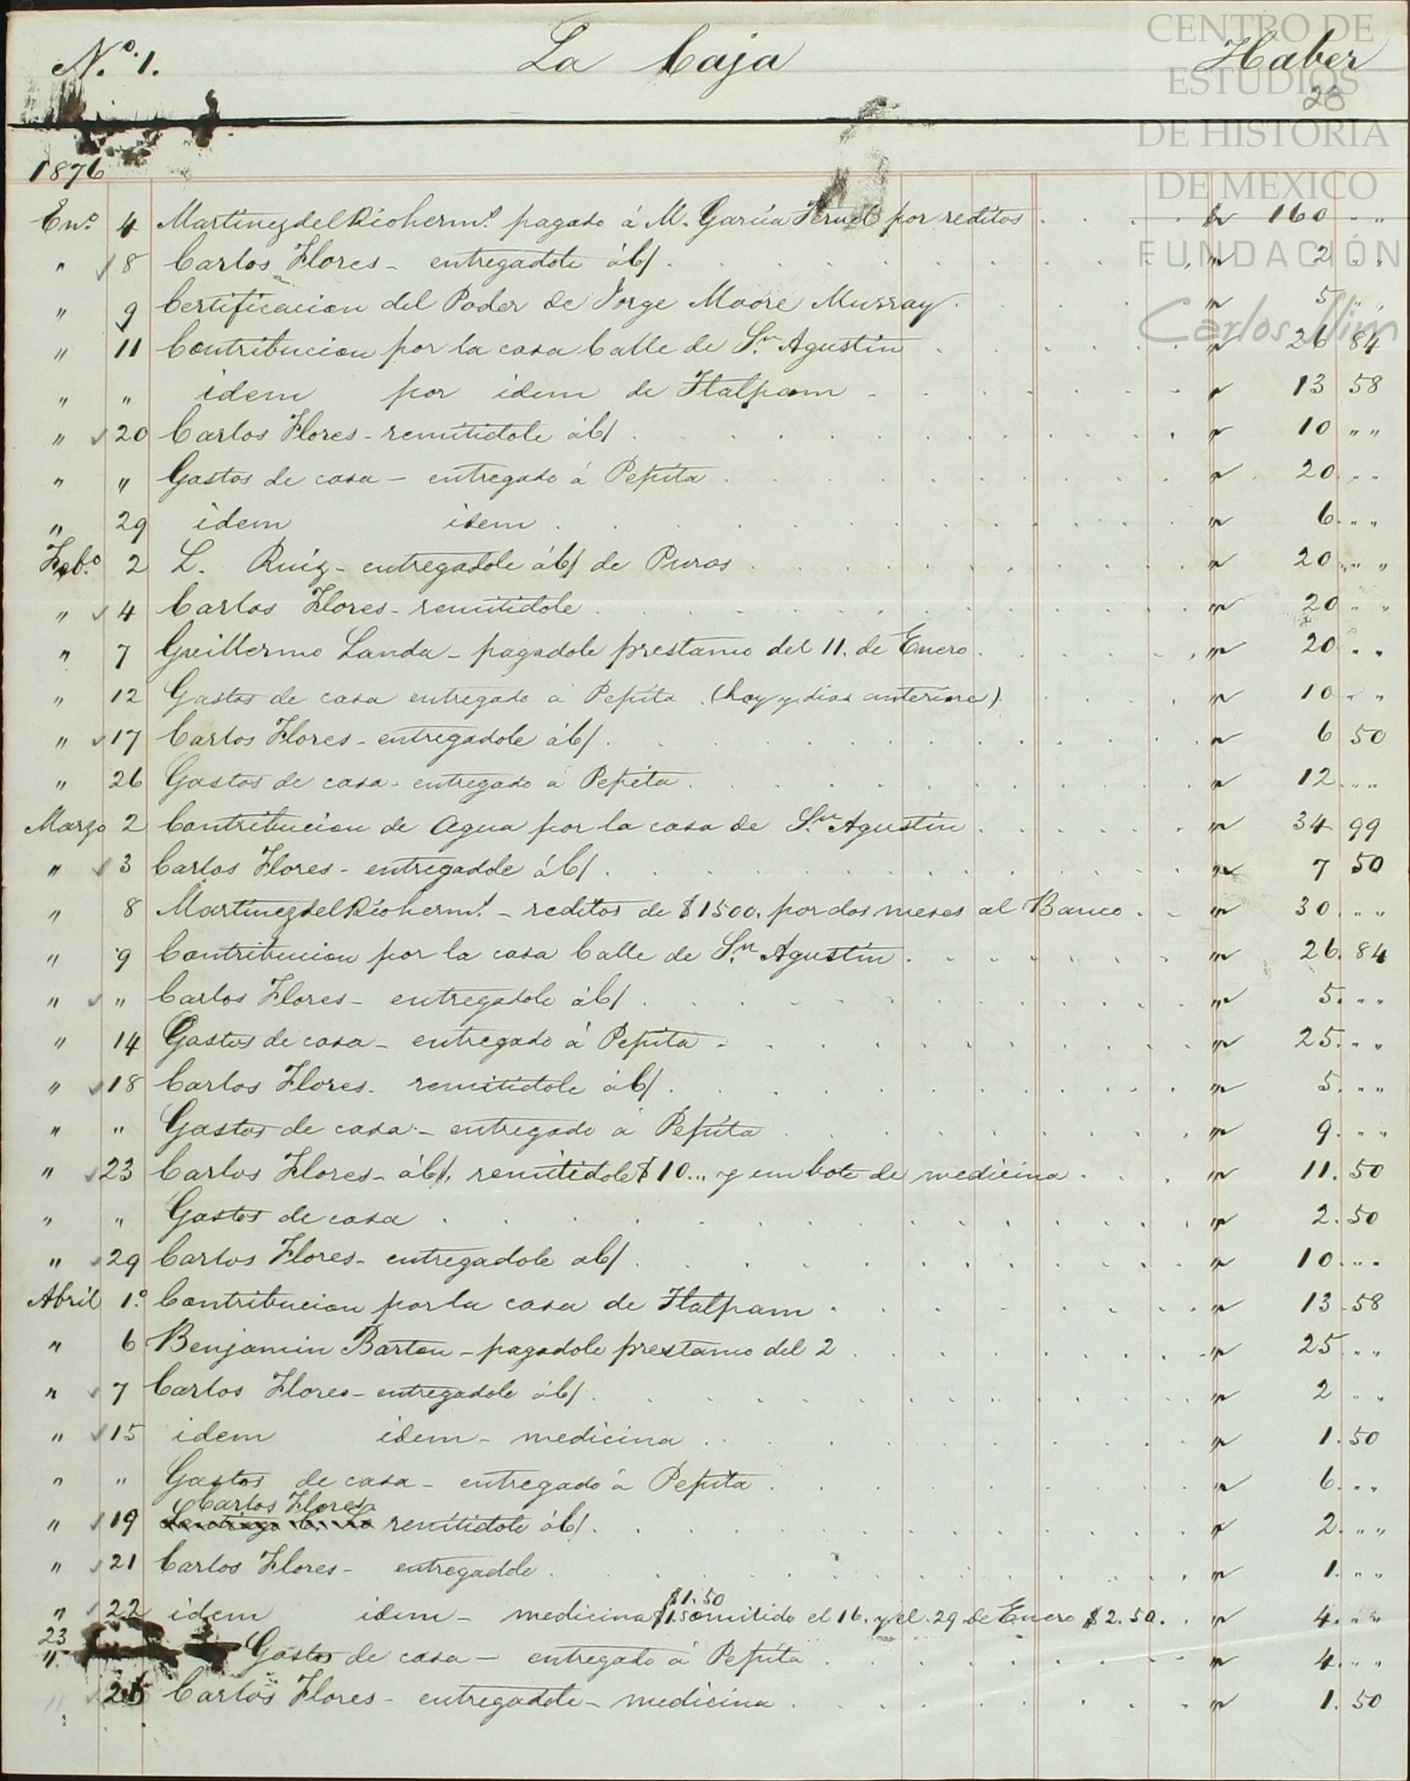 N.º 1. La Caja Haber
28
CENTRO DE
ESTUDIOS
DE HISTORIA
DE MEXICO
FUNDACIÓN
Carlos Slim
1876
En.º 4 Martinez del Rio herm.s pagado á M. García Teruel por reditos " 160 " "
" 8 Carlos Flores - entregadole á c/ " 2 " "
" 9 Certificacion del Poder de Jorge Moore Murray " 5 " "
" 11 Contribucion por la casa Calle de S.n Agustin " 26 84
" " idem por idem de Tlalpam " 13 58
" 20 Carlos Flores - remitidole á c/ " 10 " "
" " Gastos de casa - entregado á Pepita " 20 " "
" 29 idem idem " 6 " "
Feb.º 2 L. Ruiz - entregadole á c/ de Puros " 20 " "
" 4 Carlos Flores - remitidole " 20 " "
" 7 Guillermo Landa - pagadole prestamo del 11. de Enero " 20 " "
" 12 Gastos de casa entregado a Pepita (hoy y dias anteriore) " 10 " "
" 17 Carlos Flores - entregadole á c/ " 6 50
" 26 Gastos de casa - entregado a Pepita " 12 " "
Marzo 2 Contribucion de Agua por la casa de S.n Agustin " 34 99
" 3 Carlos Flores - entregadole á c/ " 7 50
" 8 Martinez del Rio herm.s - reditos de $1500. por dos meses al Banco " 30 " "
" 9 Contribucion por la casa Calle de S.n Agustin " 26. 84
" " Carlos Flores - entregadole á c/ " 5. " "
" 14 Gastos de casa - entregado á Pepita " 25. " "
" 18 Carlos Flores - remitidole á c/ " 5. " "
" " Gastos de casa - entregado a Pepita " 9. " "
" 23 Carlos Flores - á c/, remitidole $10... y un bote de medicina " 11. 50
" " Gastos de casa " 2. 50
" 29 Carlos Flores - entregadole a c/ " 10. " "
Abril 1.º Contribucion por la casa de Tlalpam " 13. 58
" 6 Benjamin Barton - pagadole prestamo del 2 " 25 " "
" 7 Carlos Flores - entregadole á c/ " 2 " "
" 15 idem idem - medicina " 1. 50
" " Gastos de casa - entregado á Pepita " 6. " "
Carlos Flores
" 19 remitidole á c/ " 2. " "
" 21 Carlos Flores - entregadole " 1. " "
$1.50
" 22 idem idem - medicina omitido el 16. y el 29 de Enero $2.50. " 4. " "
23
" Gastos de casa - entregado á Pepita " 4. " "
" Carlos Flores - entregadole - medicina " 1. 50